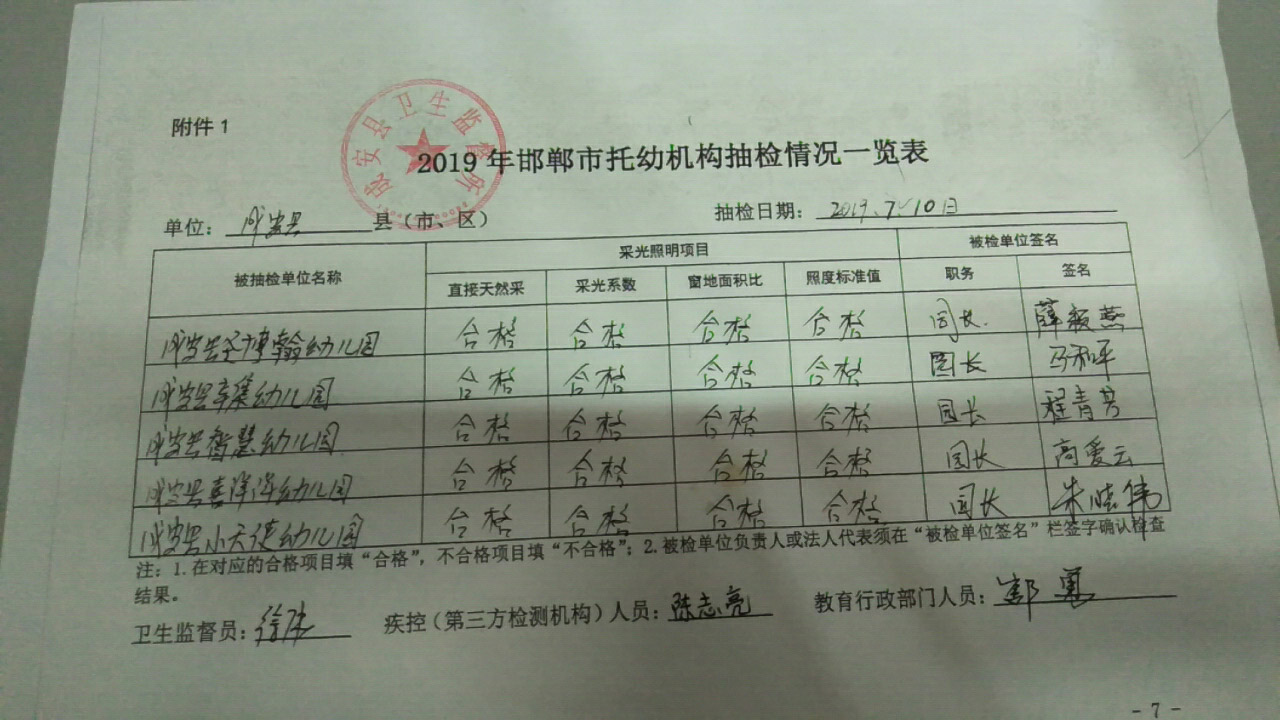 附件1
成安县卫生监督所
2019年邯郸市托幼机构抽检情况一览表
单位：成安县 县（市、区） 抽检日期：2019.7.10日
被抽检单位名称 采光照明项目 被检单位签名
直接天然采 采光系数 窗地面积比 照度标准值 职务 签名
成安县圣博翰幼儿园 合格 合格 合格 合格 园长 薛毅燕
成安县幼儿园 合格 合格 合格 合格 园长 马和平
成安县智慧幼儿园 合格 合格 合格 合格 园长 程青芳
成安县喜洋洋幼儿园 合格 合格 合格 合格 园长 高爱云
成安县小天使幼儿园 合格 合格 合格 合格 园长 朱晓伟
注：1.在对应的合格项目填“合格”，不合格项目填“不合格”；2.被检单位负责人或法人代表须在“被检单位签名”栏签字确认检查
结果。
卫生监督员：徐 疾控（第三方检测机构）人员：陈志亮 教育行政部门人员：郭勇
- 7 -